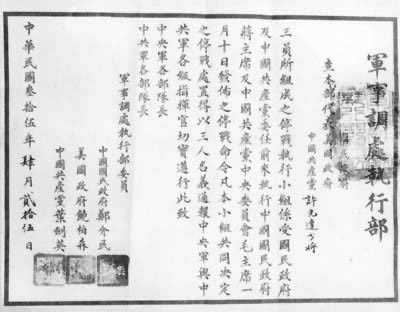 軍事調處執行部
查本部代表美國政府
中國共產黨 許光達少將
三員所組成之停戰執行小組係受國民政府
及中國共產黨委任前來執行中國國民政府
蔣主席及中國共產黨中央委員會毛主席一
月十日發佈之停戰命令凡本小組共同決定
之停戰處置得以三人名義通報中央軍與中
共軍各級指揮官切實遵行此致
中央軍各部隊長
中共軍各部隊長
軍事調處執行部委員
中國國民政府鄭介民
美國政府饒柏森
中國共產黨葉劍英
中華民國叁拾伍年肆月貳拾伍日